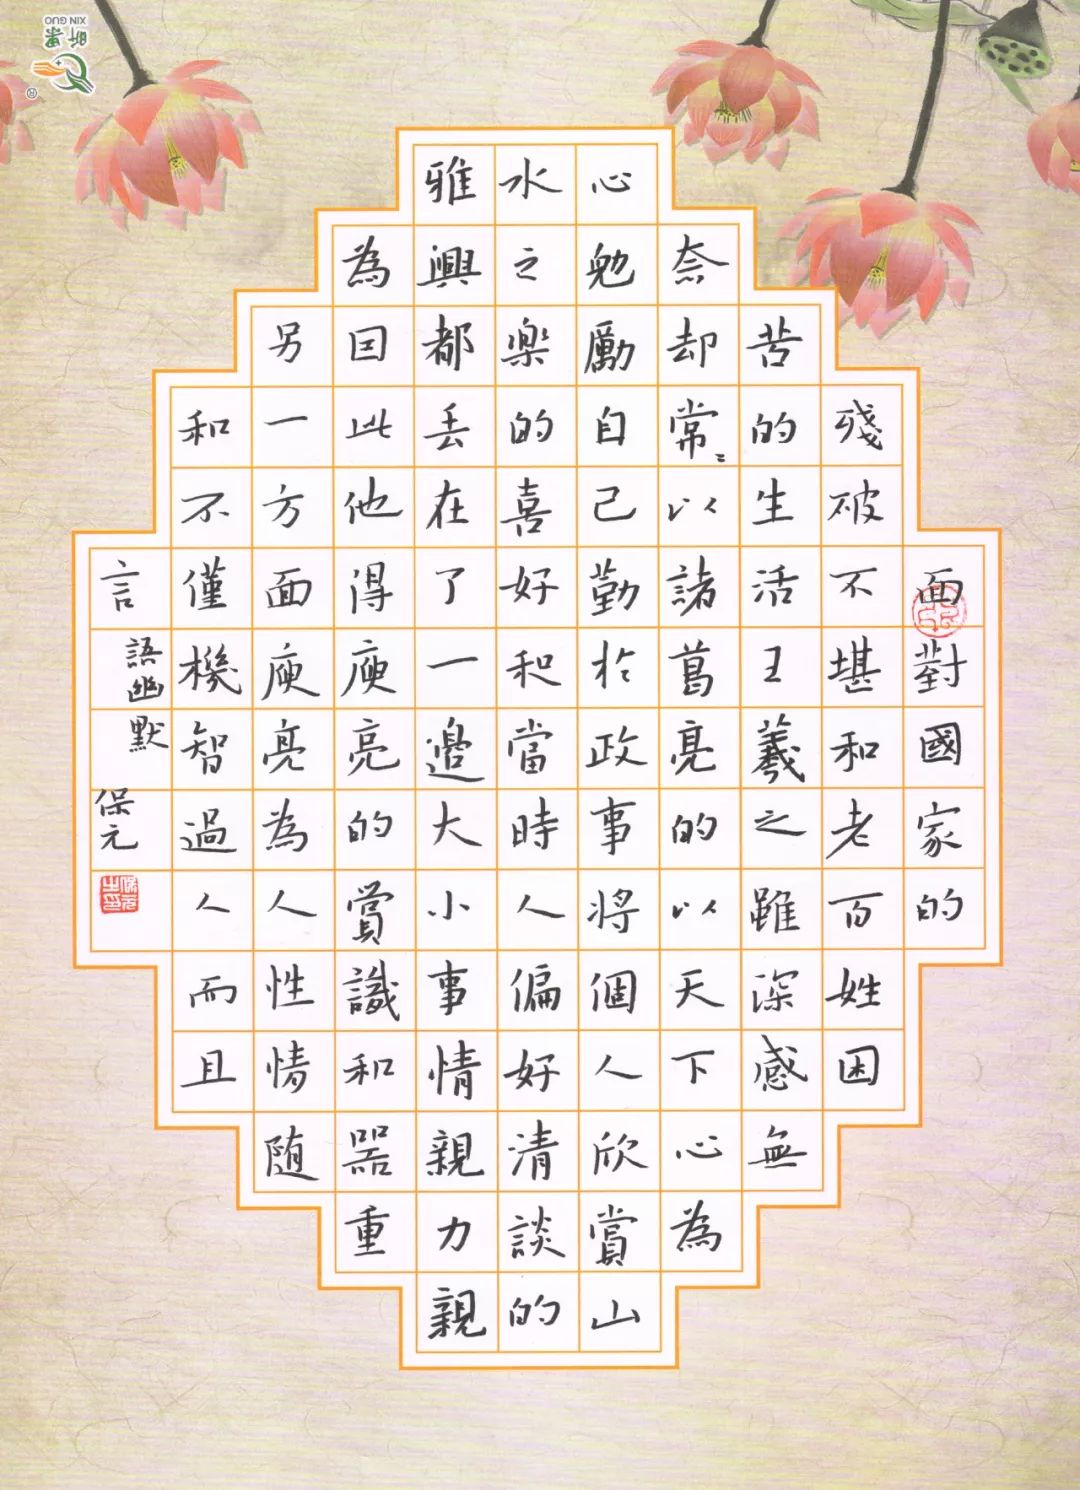 面對國家的
殘破不堪和老百姓困
苦的生活王羲之雖深感無
奈却常〻以諸葛亮的以天下心為
心勉勵自己勤於政事將個人欣賞山
水之樂的喜好和當時人偏好清談的
雅興都丢在了一邉大小事情親力親
為囙此他得庾亮的賞識和器重
另一方面庾亮為人性情随
和不僅機智過人而且
言語幽默
保元
XIN GUO